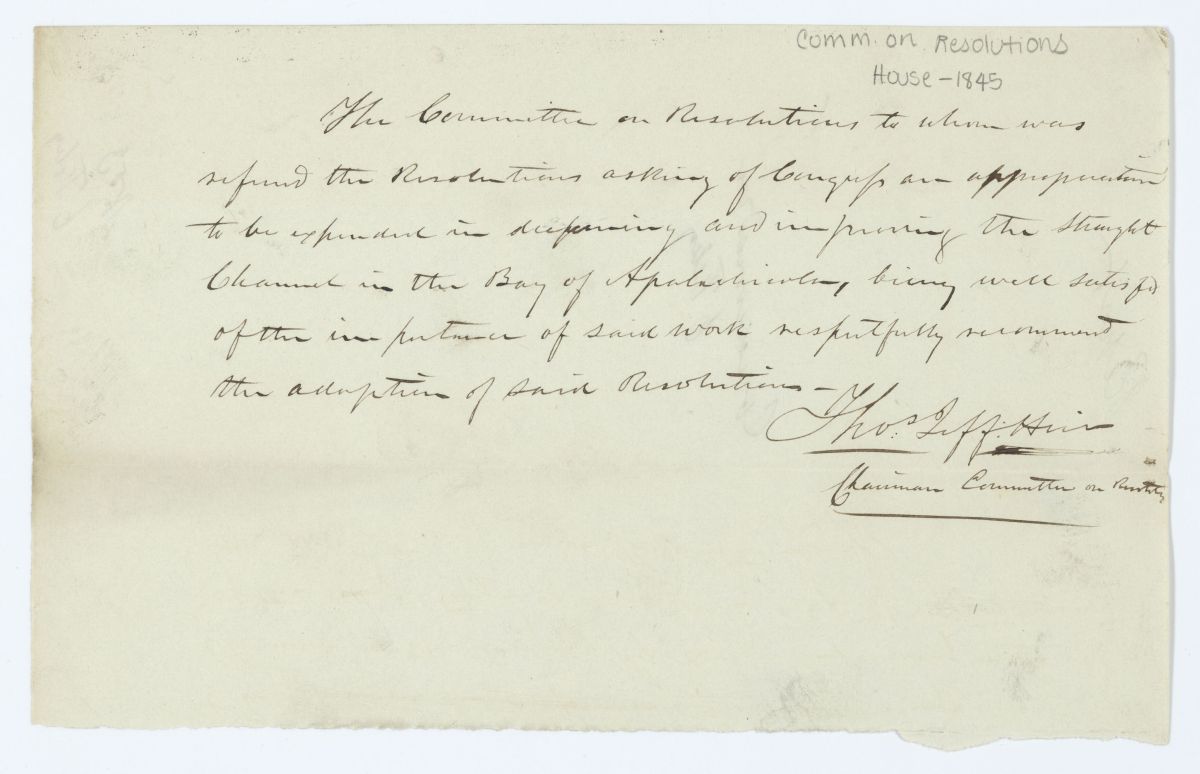 Comm. on Resolutions
House - 1845
The Committee on Resolutions to whom was
referred the Resolutions asking of Congress an appropriation
to be expended in deepening and improving the Straight
Channel in the Bay of Apalachicola, being well satisfd
of the importance of said work respectfully recommend
the adoption of said Resolutions -
Thos. Jeff.
Chairman Committee on